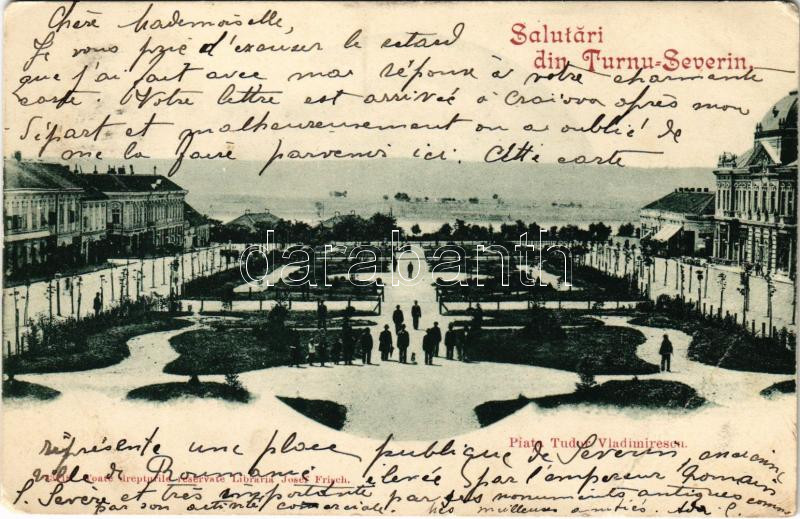 Chère Mademoiselle,
Je vous prie d'excuser le retard
que j'ai fait avec ma réponse à votre charmante
carte. Votre lettre est arrivée à Craiova après mon
départ et malheureusement on a oublié de
me la faire parvenir ici. Cette carte
Salutări
din Turnu-Severin,
darabanth
représente une place publique de Severin, ancienne
Piața Tudor Vladimirescu.
ville de Roumanie élevée par l'empereur Romain
Toate drepturile reservate Librăria Josef Frisch.
S. Sévère et très importante par ses monuments antiques comme
par son activité comerciale. Mes meilleures amitiés. Ada C.